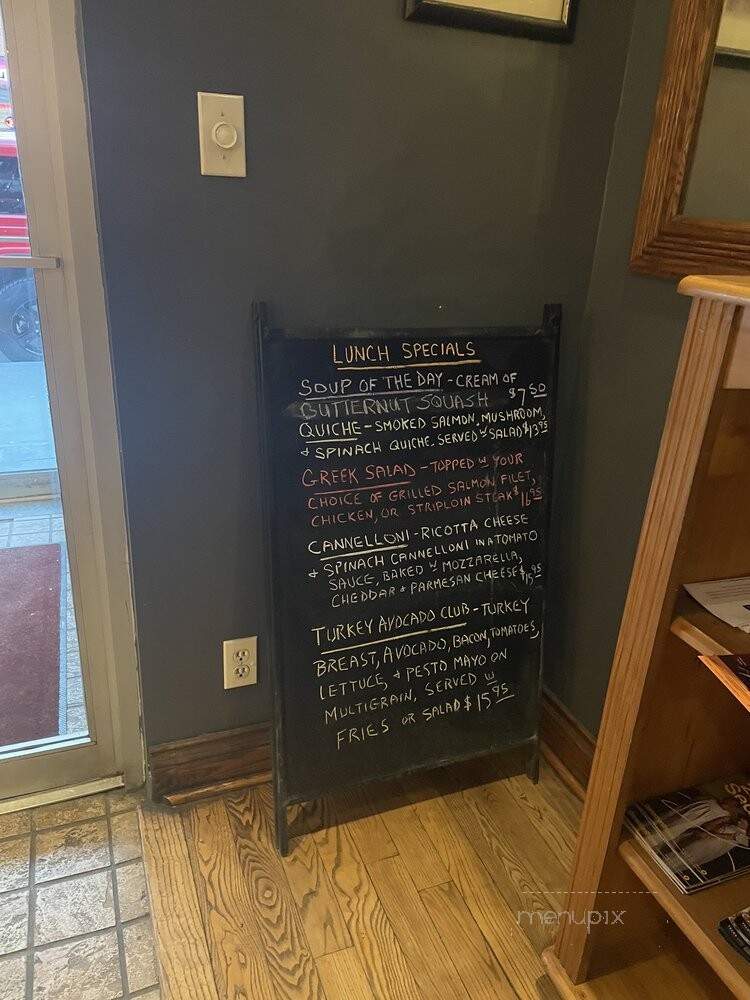 LUNCH SPECIALS
SOUP OF THE DAY - CREAM OF
BUTTERNUT SQUASH $7 50
QUICHE - SMOKED SALMON, MUSHROOM,
& SPINACH QUICHE. SERVED W SALAD $13 95
GREEK SALAD - TOPPED W YOUR
CHOICE OF GRILLED SALMON FILET,
CHICKEN, OR STRIPLOIN STEAK $16 95
CANNELLONI - RICOTTA CHEESE
& SPINACH CANNELLONI IN A TOMATO
SAUCE, BAKED W MOZZARELLA,
CHEDDAR & PARMESAN CHEESE $15 95
TURKEY AVOCADO CLUB - TURKEY
BREAST, AVOCADO, BACON, TOMATOES,
LETTUCE, & PESTO MAYO ON
MULTIGRAIN, SERVED W
FRIES OR SALAD $15 95
menupix